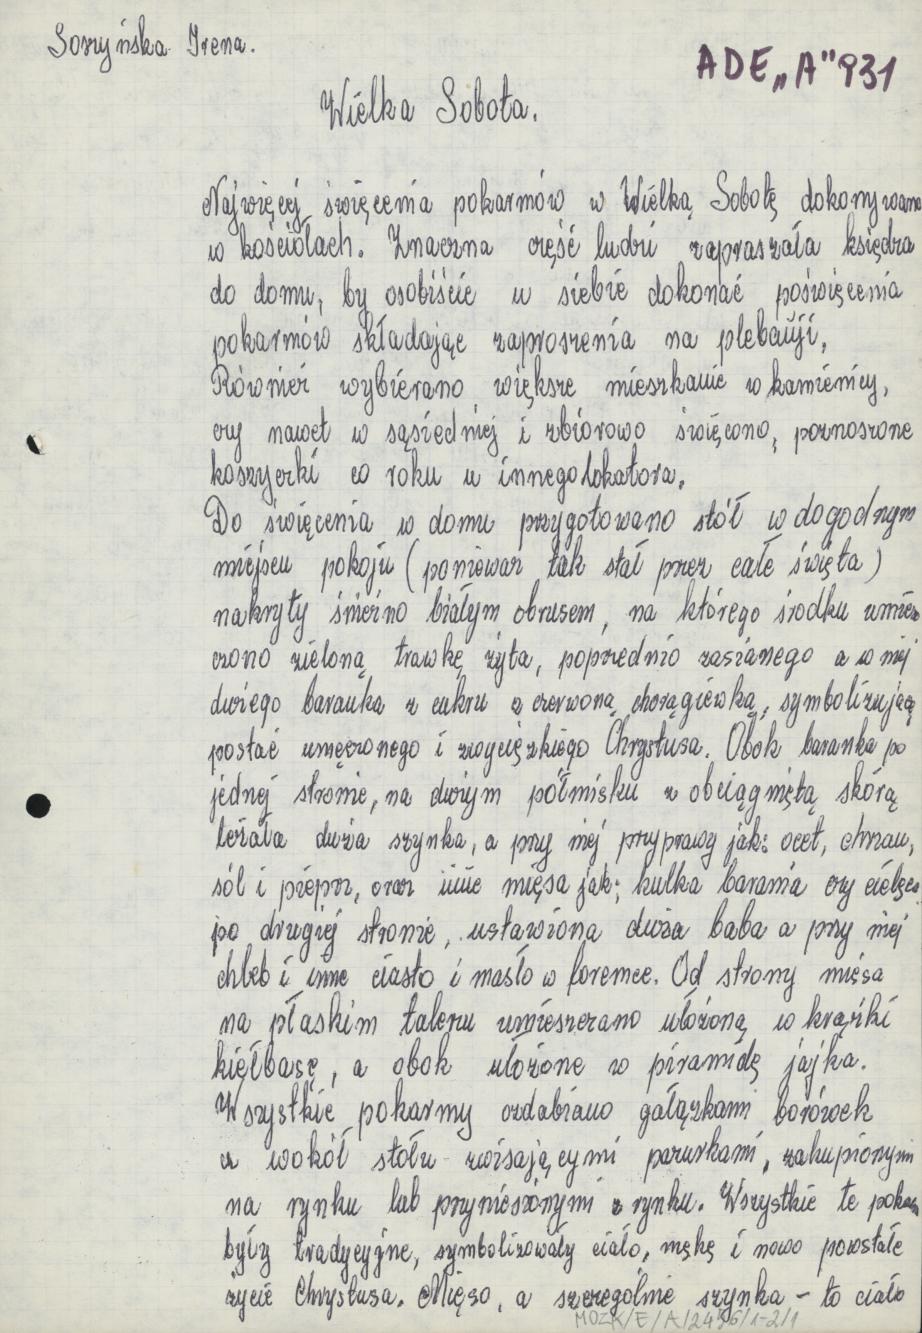 Soszyńska Irena.
ADE „A" 931
Wielka Sobota.
Najwięcej święcenia pokarmów w Wielką Sobotę dokonywano
w kościołach. Znaczna część ludzi zapraszała księdza
do domu, by osobiście u siebie dokonać poświęcenia
pokarmów składając zaproszenia na plebanji,
Również wybierano większe mieszkanie w kamienicy,
czy nawet w sąsiedniej i zbiorowo święcono, poznoszone
koszyczki co roku u innego lokatora.
Do święcenia w domu przygotowano stół w dogodnym
miejscu pokoju (ponieważ tak stał przez całe święta)
nakryty śnieżno białym obrusem, na którego środku umiesz
czono zieloną trawkę żyta, poprzednio zasianego a w niej
dużego baranka z cukru z czerwoną chorągiewką, symbolizującą
postać umęczonego i zwycięzkiego Chrystusa. Obok baranka po
jednej stronie, na dużym półmisku z obciągniętą skórą
leżała duża szynka, a przy niej przyprawy jak: ocet, chrzan,
sól i pieprz, oraz inne mięsa jak; kulka barania czy cielęca
po drugiej stronie, ustawiona duża baba a przy niej
chleb i inne ciasto i masło w foremce. Od strony mięsa
na płaskim talerzu umieszczano ułożoną w krążki
kiełbasę, a obok ułożone w piramidę jajka.
Wszystkie pokarmy ozdabiano gałązkami borówek
a wokół stołu zwisającymi pazurkami, zakupionymi
na rynku lub przyniesionymi z rynku. Wszystkie te pokarmy
były tradycyjne, symbolizowały ciało, mękę i nowo powstałe
życie Chrystusa. Mięso, a szczególnie szynka – to ciało
MOZK/E/A/2456/1-2/1